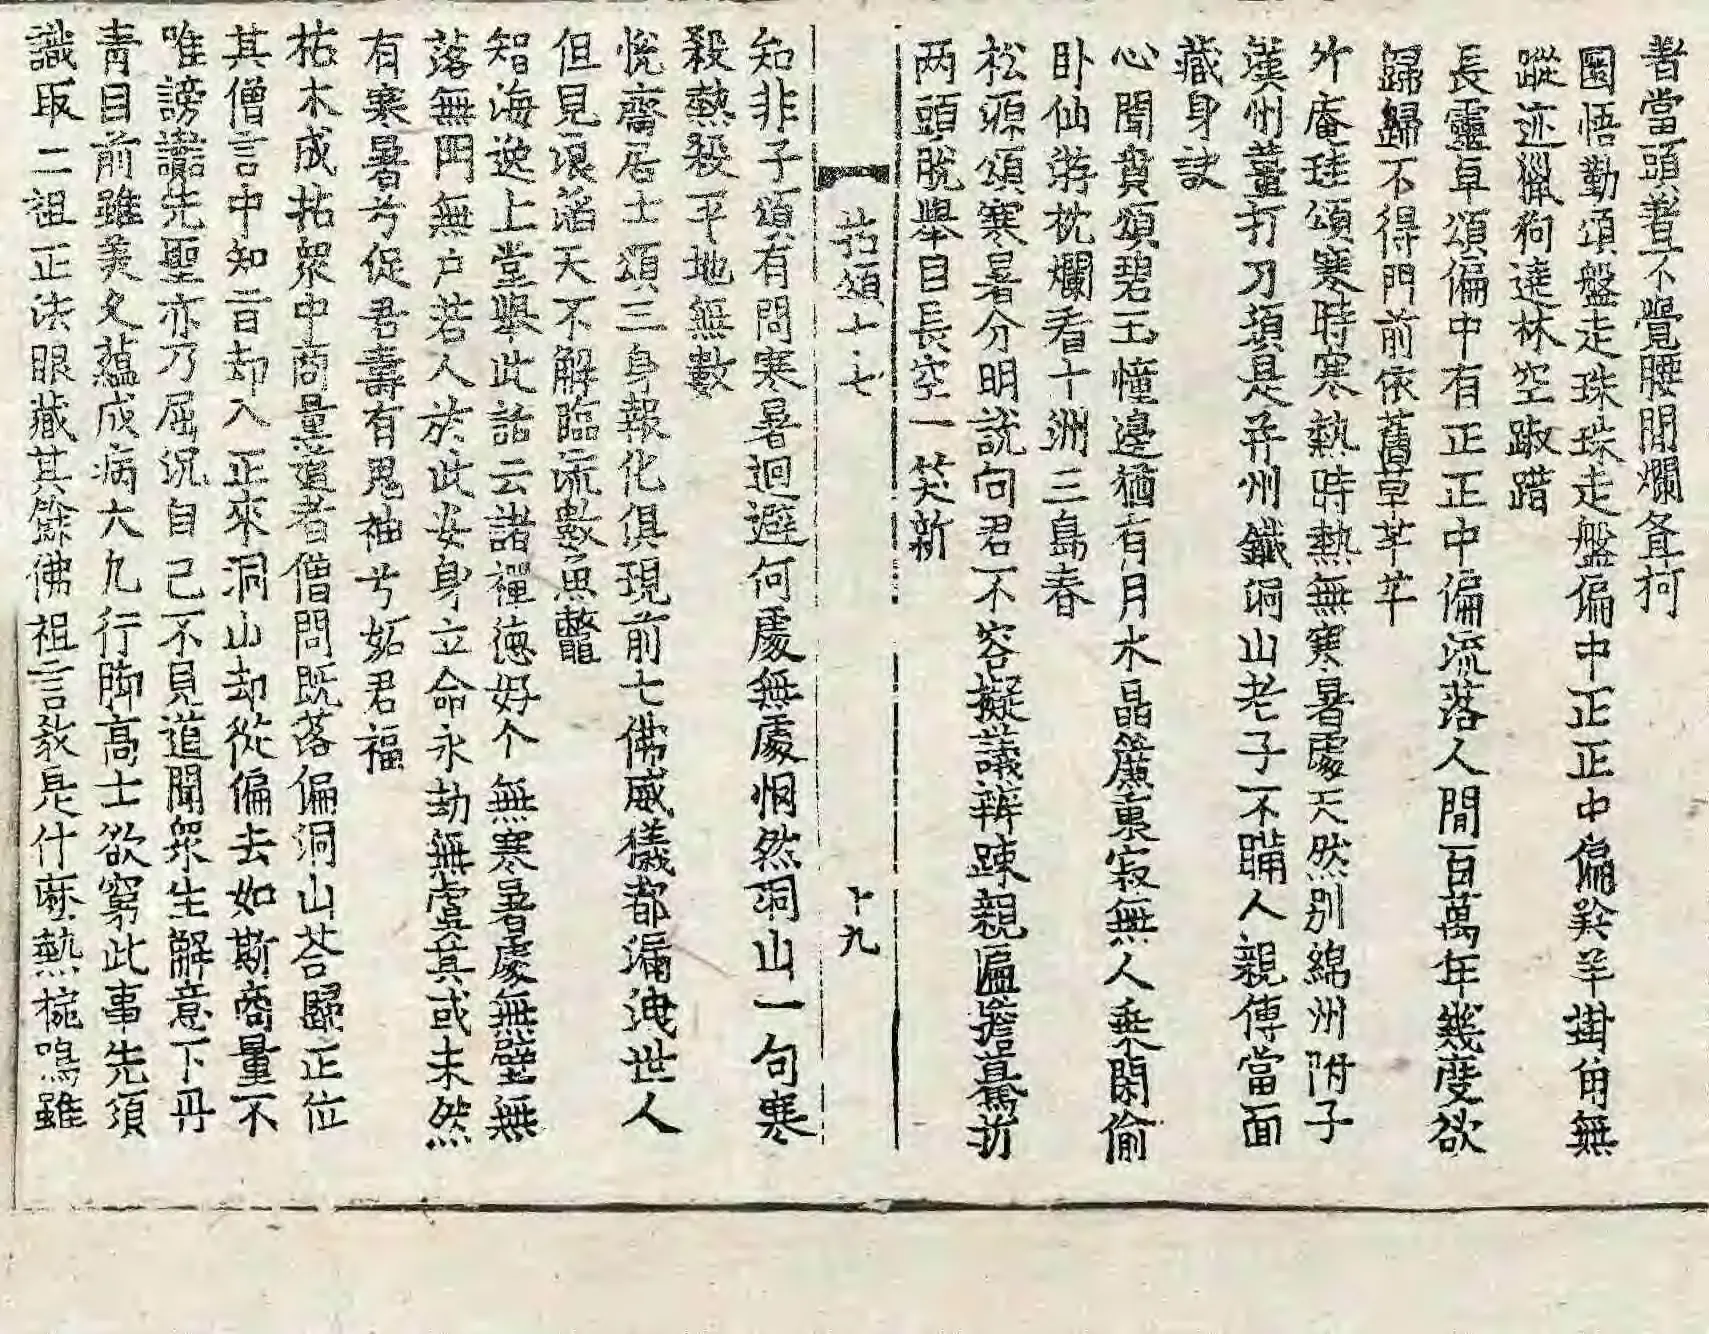 著當頭著不覺腰間爛斧柯
圜悟勤頌盤走珠珠走盤偏中正正中偏羚羊掛角無
蹤迹獵狗遶林空踧踖
長靈卓頌偏中有正正中偏流落人間百萬年幾度欲
歸歸不得門前依舊草芊芊
竹庵珪頌寒時寒熱時熱無寒暑處天然別綿州附子
漢州薑打刀須是幷州鐵洞山老子不瞞人親傳當面
藏身訣
心聞賁頌碧玉幢邊猶有月水晶簾裏寂無人乘閑偷
卧仙遊枕爛看十洲三島春
松源頌寒暑分明說向君不容擬議辨踈親匾擔驀折
两頭脫舉目長空一笑新
拈頌十七
十九
知非子頌有問寒暑迴避何處無處惘然洞山一句寒
殺熱殺平地無數
恱齋居士頌三身報化俱現前七佛威儀都漏洩世人
但見浪滔天不解臨流數魚鼈
智海逸上堂擧此話云諸禪德好个無寒暑處無壁無
落無門無户若人於此安身立命永劫無虛其或未然
有寒暑兮促君壽有鬼神兮妬君福
枯木成拈衆中商量道者僧問旣落偏洞山荅歸正位
其僧言中知音却入正來洞山却從偏去如斯商量不
唯謗讟先聖亦乃屈沉自己不見道聞衆生解意下丹
靑目前雖美久蘊成病大凡行脚高士欲窮此事先須
識取二祖正法眼藏其餘佛祖言敎是什麽熱椀鳴雖